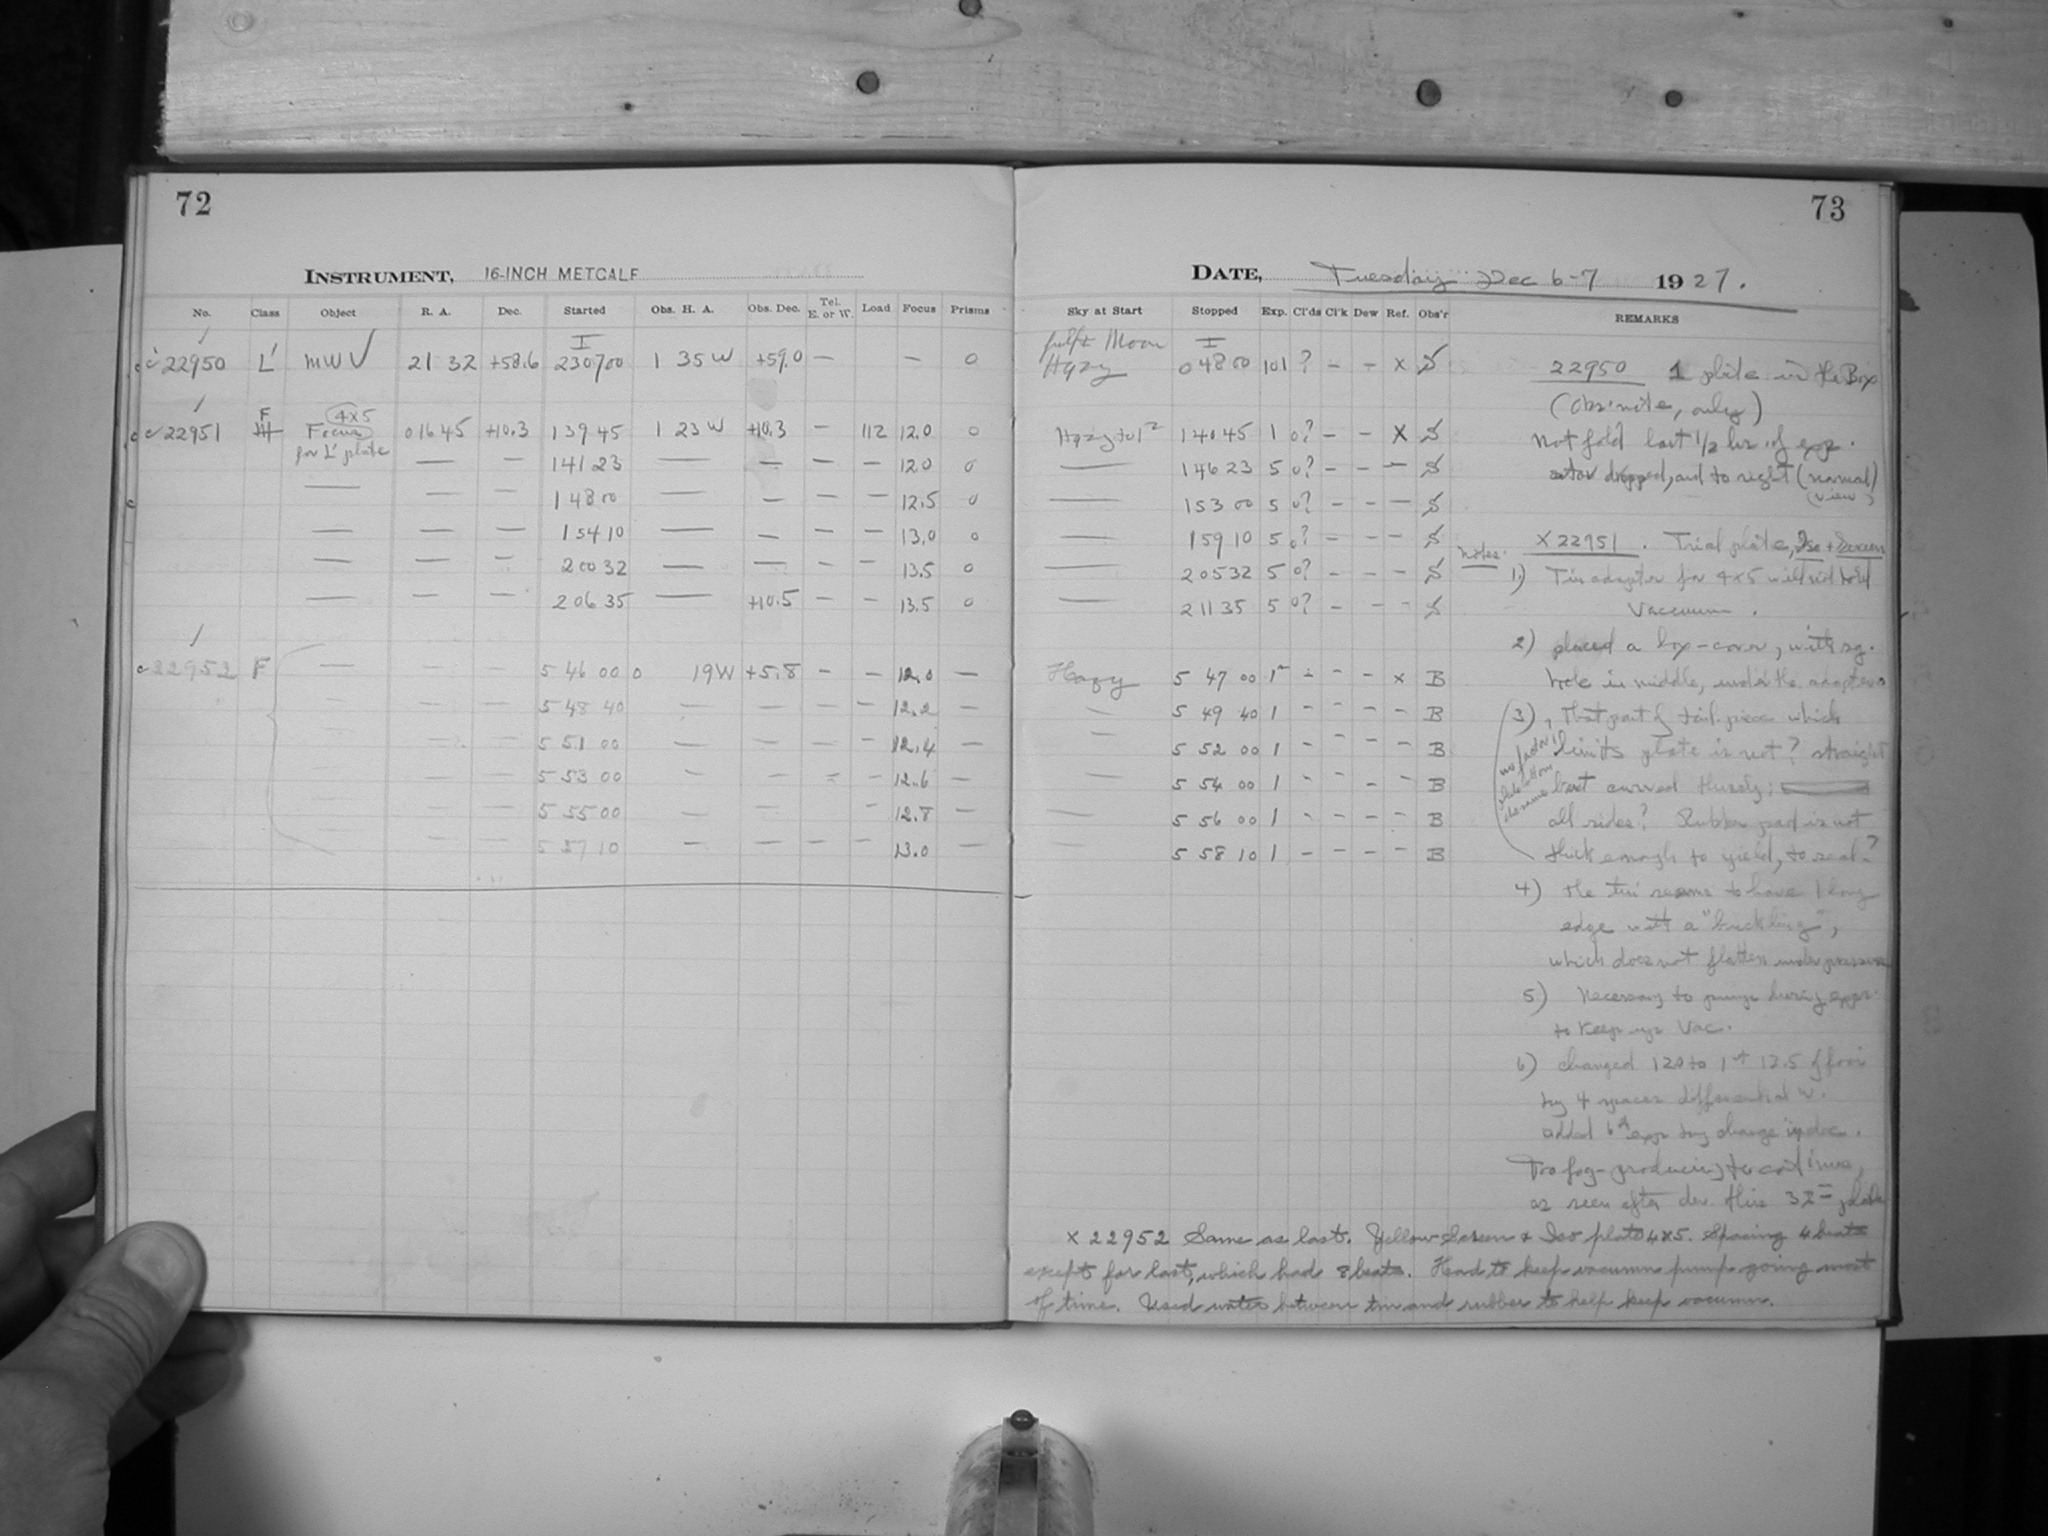 72
INSTRUMENT, 16-INCH METCALF
No. Class Object R. A. Dec. Started Obs. H. A. Obs. Dec. Tel. E. or W. Load Focus Prisms
I
22950 L' MW √ 21 32 +58.6 23 07 00 1 35 W +59.0 — — 0
22951 F 4x5 Focus 01 64 5 +10.3 1 39 45 1 23 W +10.3 — 112 12.0 0
for L' plate — — 1 41 23 — — — — 12.0 0
— — — 1 48 00 — — — — 12.5 0
— — — 1 54 10 — — — — 13.0 0
— — — 2 00 32 — — — — 13.5 0
— — — 2 06 35 — +10.5 — — 13.5 0
22952 F — — — 5 46 00 0 19 W +5.8 — — 12.0 —
— — — 5 48 40 — — — — 12.2 —
— — — 5 51 00 — — — — 12.4 —
— — — 5 53 00 — — — — 12.6 —
— — — 5 55 00 — — — 12.8 —
— — — 5 57 10 — — — — 13.0 —
73
DATE, Tuesday Dec 6-7 1927.
Sky at Start Stopped Exp. Cl'ds Cl'k Dew Ref. Obs'r REMARKS
Moon I
Hazy 0 48 00 101 ? — — x S 22950 1 plate in the Box
(Obs. note, only)
Hazy to 1 40 45 1 0? — — X S Not fold last 1/2 hr. of exp.
— 1 46 23 5 0? — — — S star dropped, and to right (normal)
(view)
— 1 53 00 5 0? — — — S
— 1 59 10 5 0? — — — S Notes. X 22951. Trial plate, Iso + Screen
— 2 05 32 5 0? — — — S 1.) Tin adapter for 4x5 will not hold
— 2 11 35 5 0? — — — S Vacuum.
2) placed a box-cover, with sq.
Hazy 5 47 00 1 — — — x B hole in middle, under the adapter
— 5 49 40 1 — — — — B 3), That part of tail-piece which
— 5 52 00 1 — — — — B limits plate is not? straight
— 5 54 00 1 — — — — B but curved thusly:
— 5 56 00 1 — — — — B all sides? Rubber pad is not
— 5 58 10 1 — — — — B thick enough to yield, to seal-?
4) the tin seems to have 1 long
edge with a "buckling",
which does not flatten under pressure
5) Necessary to pump during expr.
to keep up Vac.
6) Changed 12.0 to 1st 13.5 of foci
by 4 spaces differential W.
added 6th expr by change in dec.
Too fog-producing to continue,
as seen after dev. this 32 plate
x 22952 Same as last. Yellow Screen & Iso plate 4x5. Spacing 4 beats
except for last, which had 8 beats. Had to keep vacuum pump going most
of time. Used water between tin and rubber to help keep vacuum.